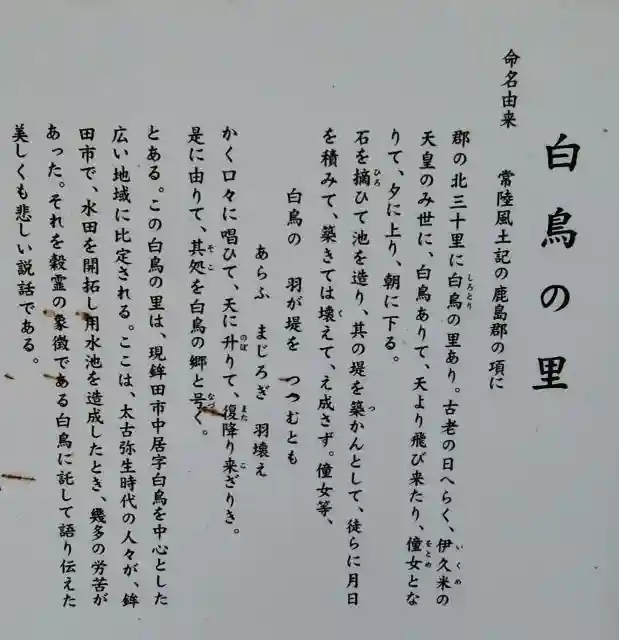 白鳥の里
命名由来
常陸風土記の鹿島郡の項に
郡の北三十里に白鳥の里あり。古老の日へらく、伊久米の
天皇のみ世に、白鳥ありて、天より飛び来たり、僮女とな
りて、夕に上り、朝に下る。
石を摘ひて池を造り、其の堤を築かんとして、徒らに月日
を積みて、築きては壊えて、え成さず。僮女等、
白鳥の 羽が堤を つつむとも
あらふ まじろぎ 羽壊え
かく口々に唱ひて、天に升りて、復降り来ざりき。
是に由りて、其処を白鳥の郷と号く。
とある。この白鳥の里は、現鉾田市中居字白鳥を中心とした
広い地域に比定される。ここは、太古弥生時代の人々が、鉾
田市で、水田を開拓し用水池を造成したとき、幾多の労苦が
あった。それを穀霊の象徴である白鳥に託して語り伝えた
美しくも悲しい説話である。